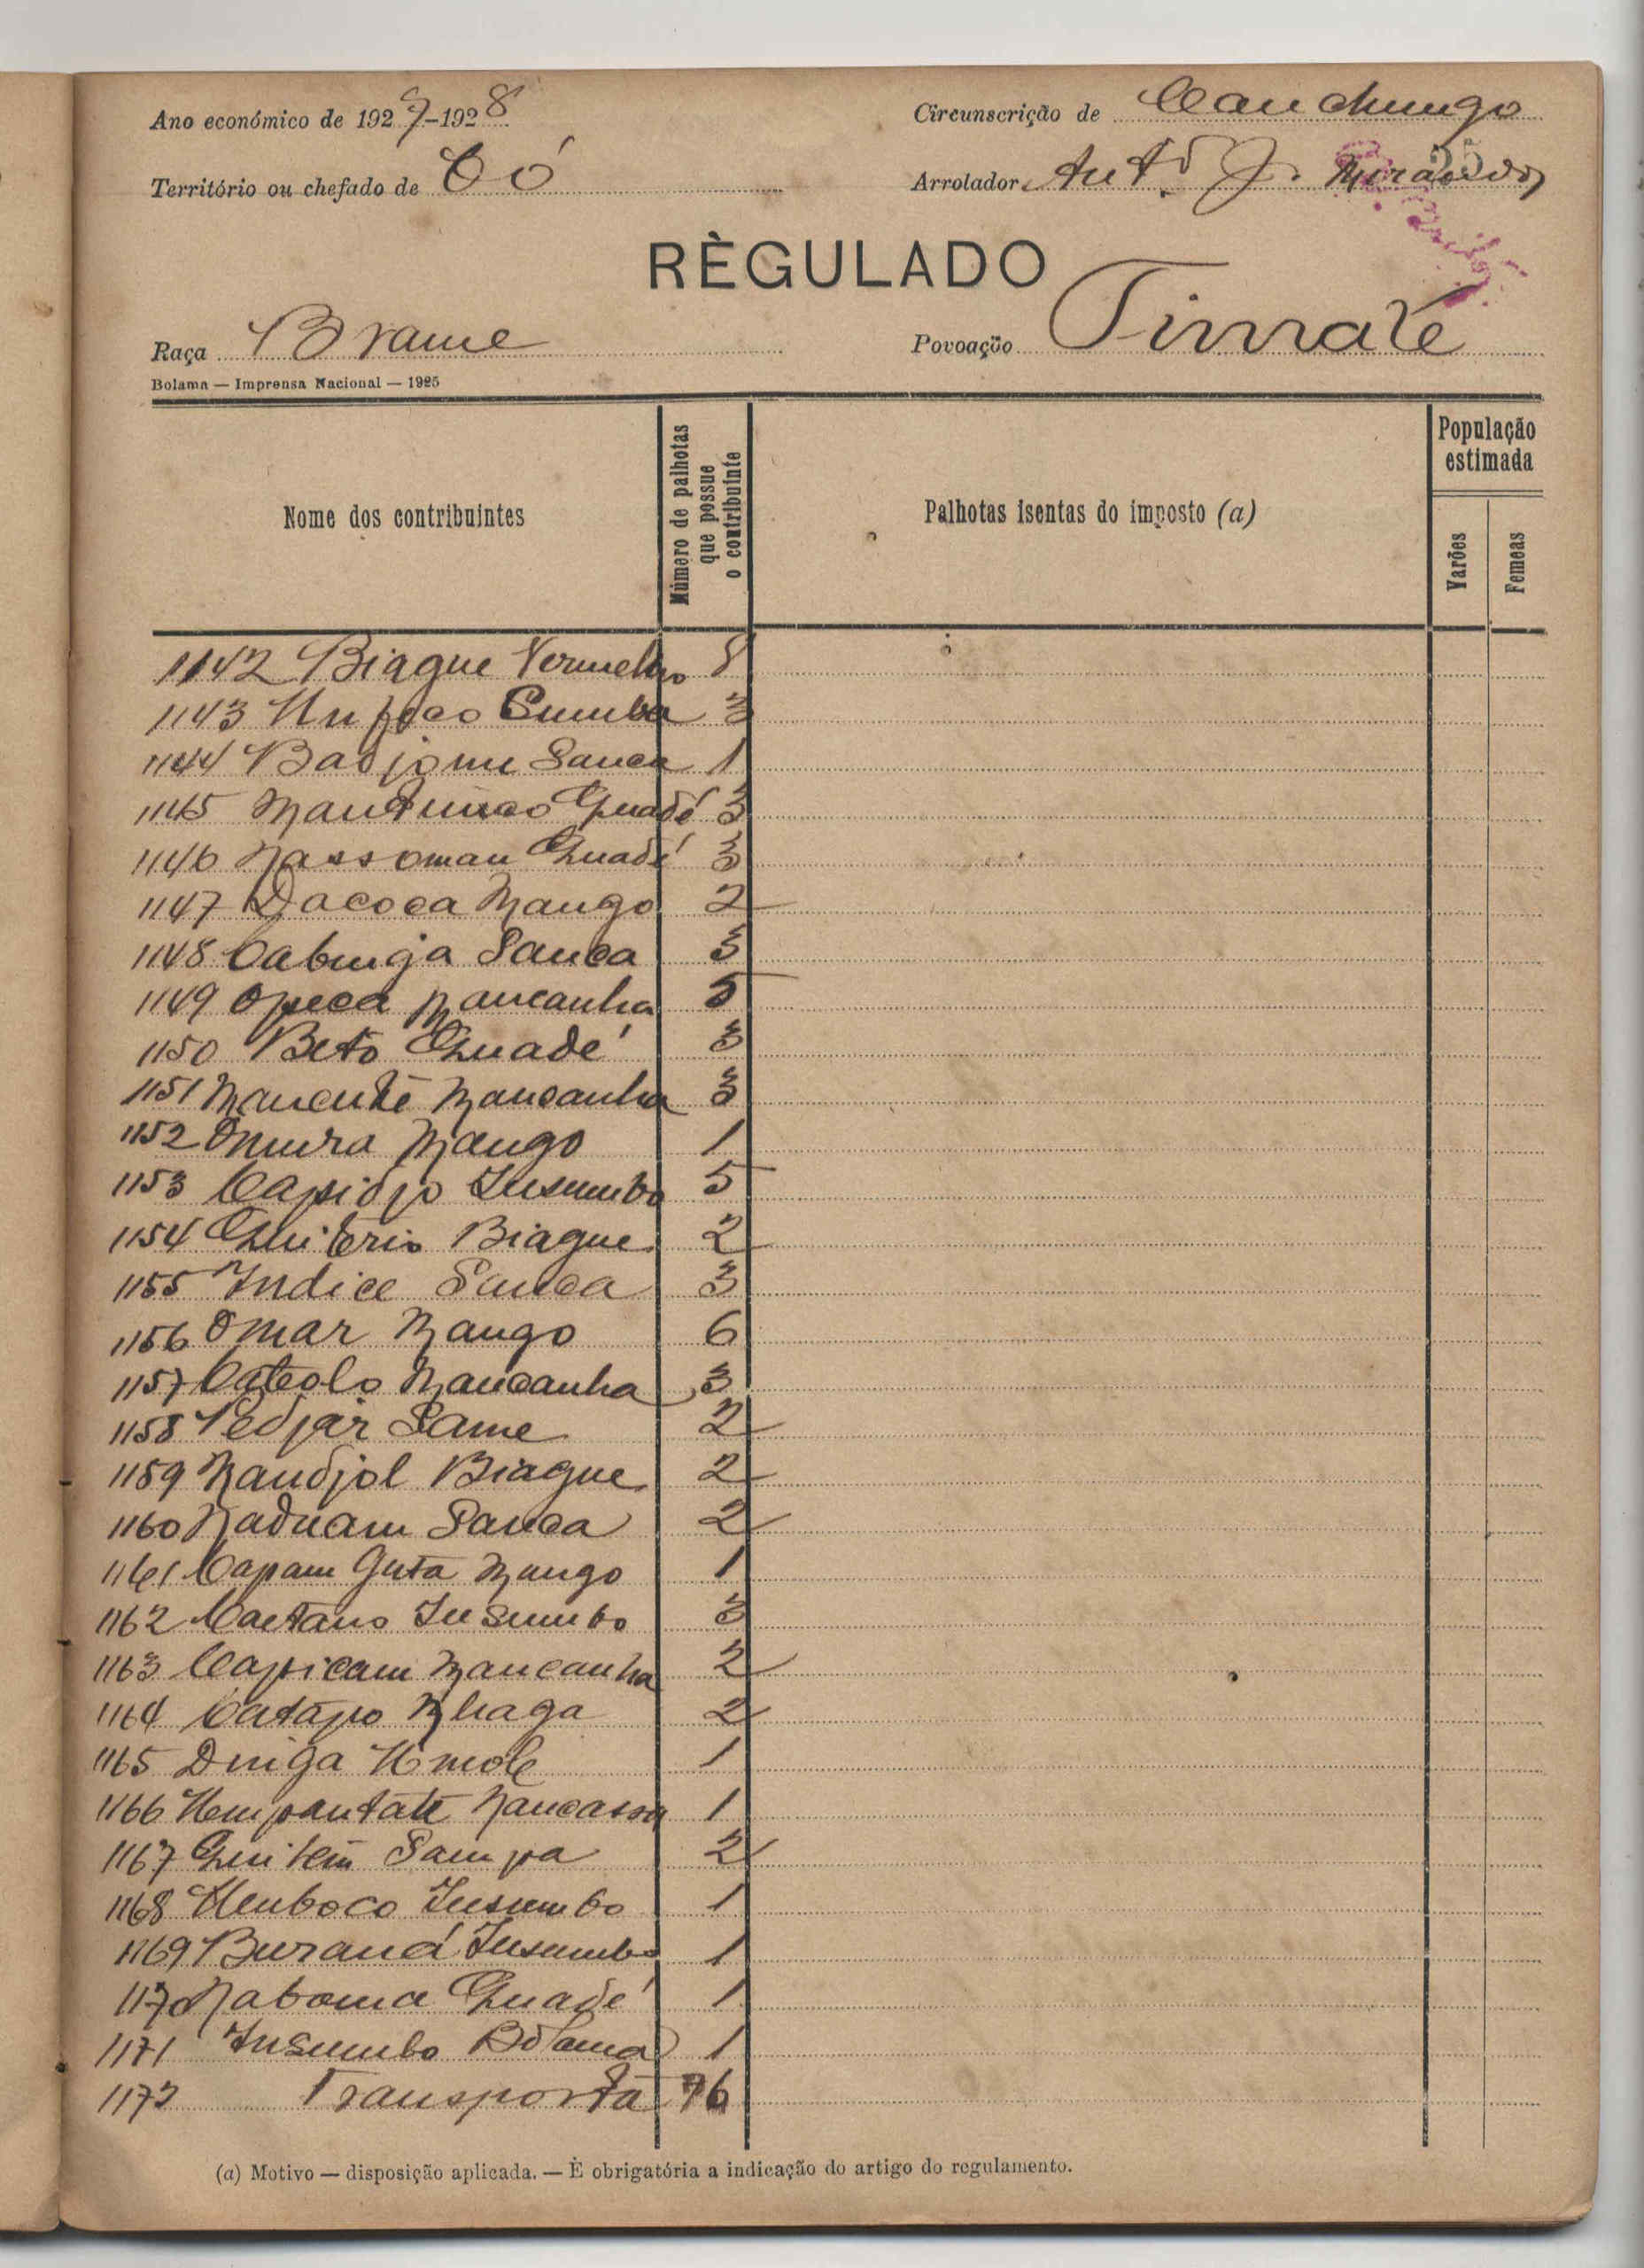 Ano económico de 1927-1928
Circunscrição de Canchungo
Território ou chefado de Có
Arrolador Antº J.
25
RÈGULADO
Raça Brame
Povoação Timate
Bolama — Imprensa Nacional — 1925
Nome dos contribuintes
Número de palhotas que possue o contribuinte
Palhotas isentas do imposto (a)
População estimada
Varões
Femeas
1142 Biague Vermelho
1143 3
1144 Badjomu Sanca 1
1145 Quadé 3
1146 Nassoman Quadé 3
1147 Dacoca Nango 2
1148 Cabunja Sanca 3
1149 Opeca Mancanha 5
1150 Beto Quadé 3
1151 Mancanha 3
1152 Omura Mango 1
1153 Capidjo Insumbo 5
1154 Quiterio Biague 2
1155 Indice Sanca 3
1156 Omar Mango 6
1157 Cateolo Mancanha 3
1158 Pedjar Same 2
1159 Mandjol Biague 2
1160 Naduam Sanca 2
1161 Capam Guta Mango 1
1162 Caetano Insumbo 3
1163 Capicam Mancanha 2
1164 Catapo Nhaga 2
1165 Duiga 1
1166 1
1167 Sampa 2
1168 Insumbo 1
1169 Buraná Insumbo 1
1170 Naboma Quadé 1
1171 Insumbo Bolama 1
1172 Transporta 76
(a) Motivo — disposição aplicada. — È obrigatória a indicação do artigo do regulamento.